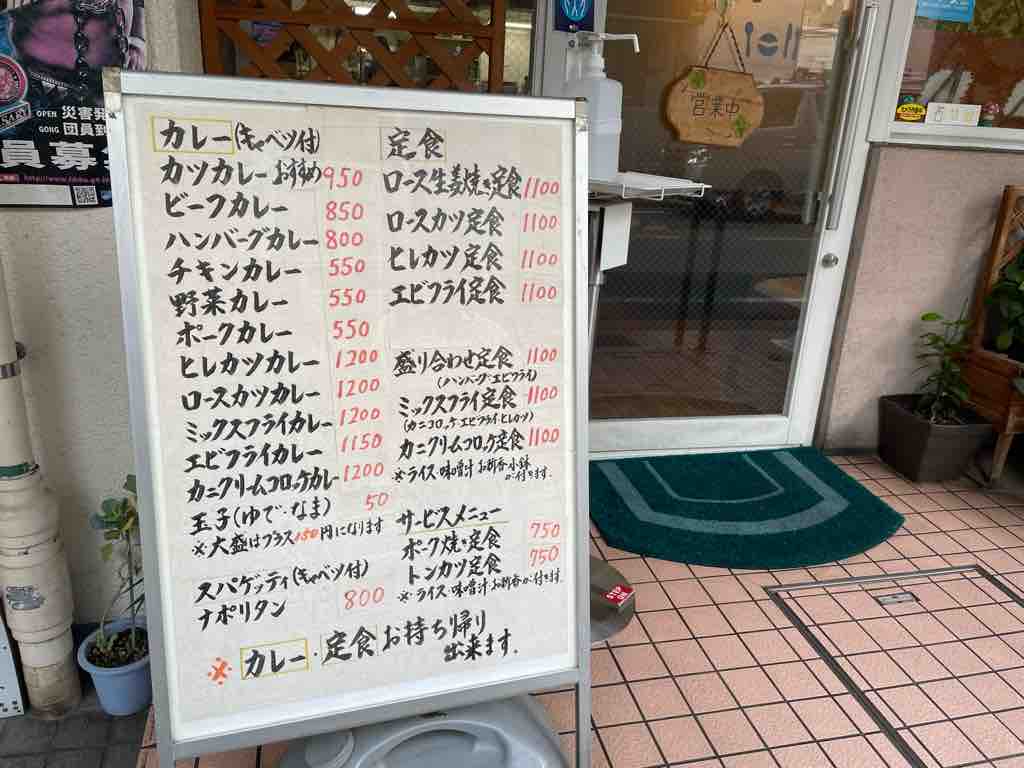 カレー(キャベツ付)
カツカレー おすすめ 950
ビーフカレー 850
ハンバーグカレー 800
チキンカレー 550
野菜カレー 550
ポークカレー 550
ヒレカツカレー 1200
ロースカツカレー 1200
ミックスフライカレー 1200
エビフライカレー 1150
カニクリームコロッケカレー 1200
玉子(ゆで・なま) 50
※大盛はプラス150円になります
スパゲッティ(キャベツ付)
ナポリタン 800
定食
ロース生姜焼き定食 1100
ロースカツ定食 1100
ヒレカツ定食 1100
エビフライ定食 1100
盛り合わせ定食 1100
(ハンバーグ・エビフライ)
ミックスフライ定食 1100
(カニコロッケ エビフライ・ヒレカツ)
カニクリームコロッケ定食 1100
※ライス・味噌汁 お新香 小鉢
が付きます.
サービスメニュー
ポーク焼き定食 750
トンカツ定食 750
※ライス・味噌汁 お新香が付きます.
※ カレー・定食 お持ち帰り
出来ます.
営業中
OPEN 災害発
GONG 団員到
員募
STEP ON